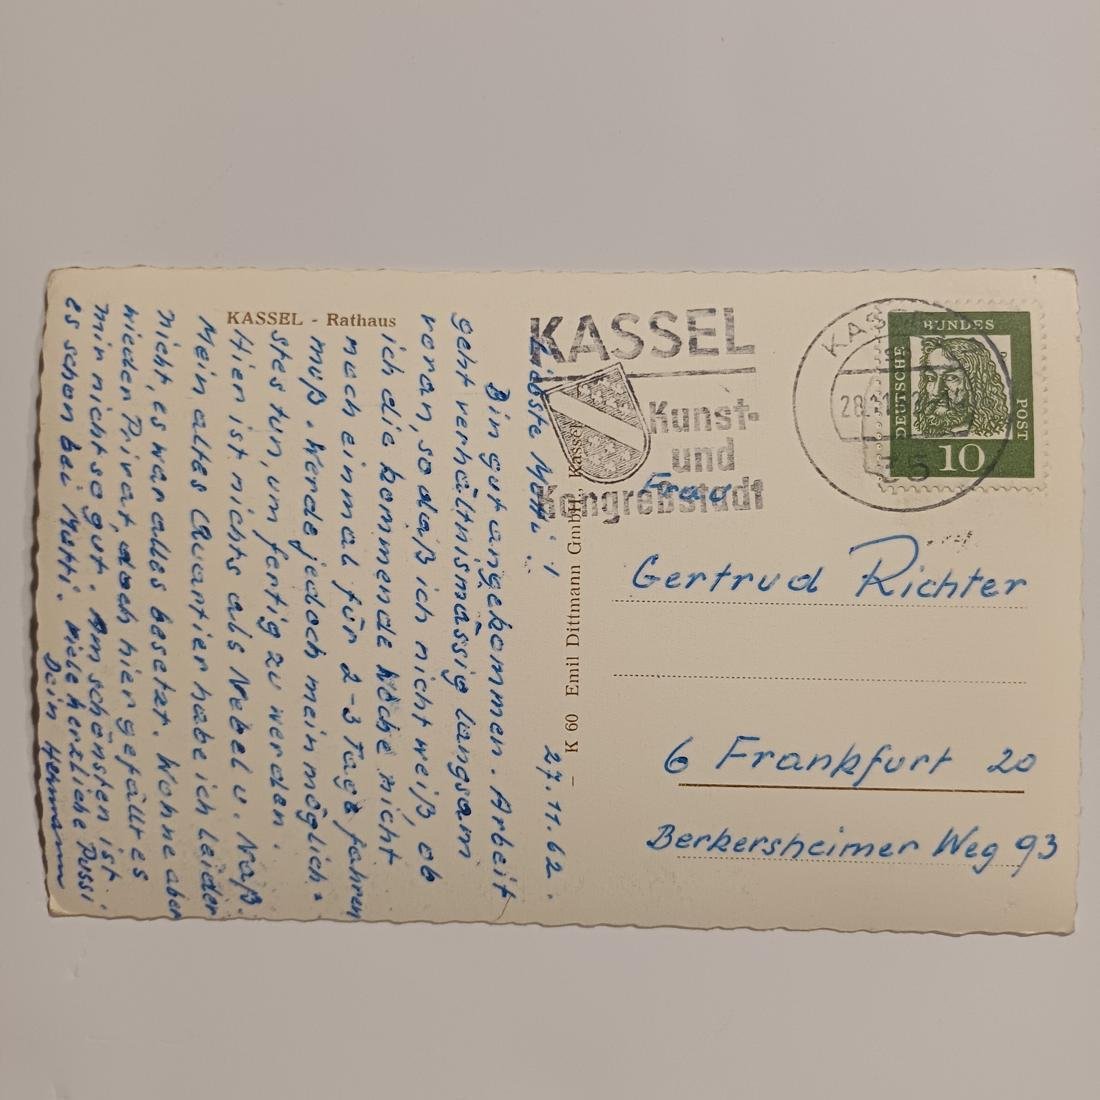 KASSEL - Rathaus
27.11.62.
Liebste Mutti,
Bin gut angekommen. Arbeit
geht verhältnismässig langsam
voran so daß ich nicht weiß, ob
ich die kommende Woche nicht
noch einmal für 2-3 Tage fahren
muß. Werde jedoch mein möglich-
stes tun, um fertig zu werden.
Hier ist nichts als Nebel u. Naß.
Mein altes Quartier habe ich leider
nicht, es war alles besetzt. Wohne aber
wieder Privat, doch hier gefällt es
mir nicht so gut. Am schönsten ist
es schon bei Mutti. Viele herzliche Bussi
Dein Hermann
K 60 Emil Dittmann GmbH., Kassel
KASSEL
Kunst-
und
Kongreßstadt
KASSEL
28.11.
35
DEUTSCHE
BUNDES
POST
10
Frau
Gertrud Richter
6 Frankfurt 20
Berkersheimer Weg 93